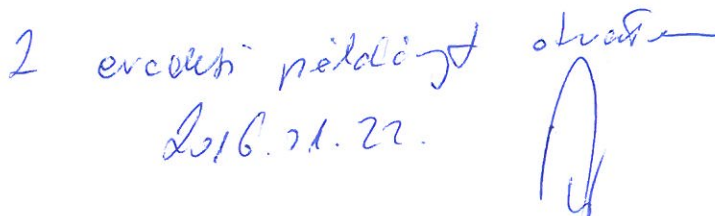 2 eredeti példányt átvettem
2016.11.22.